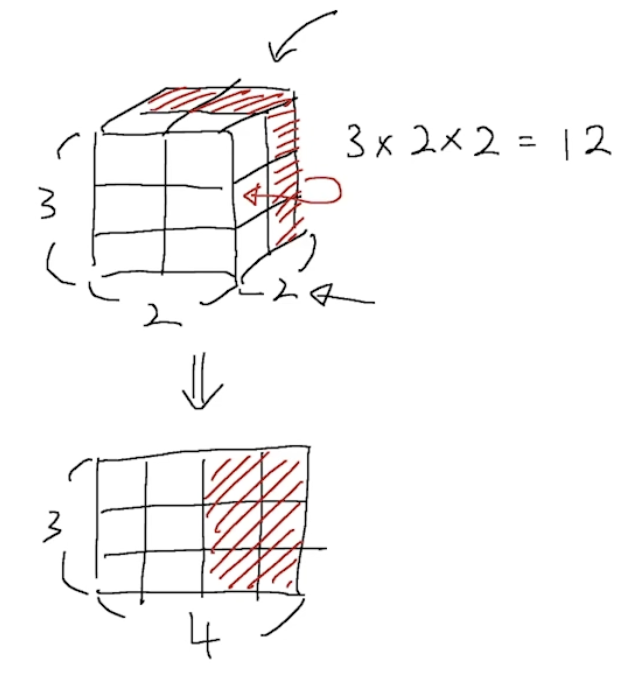 3 × 2 × 2 = 12
3
2
2
3
4